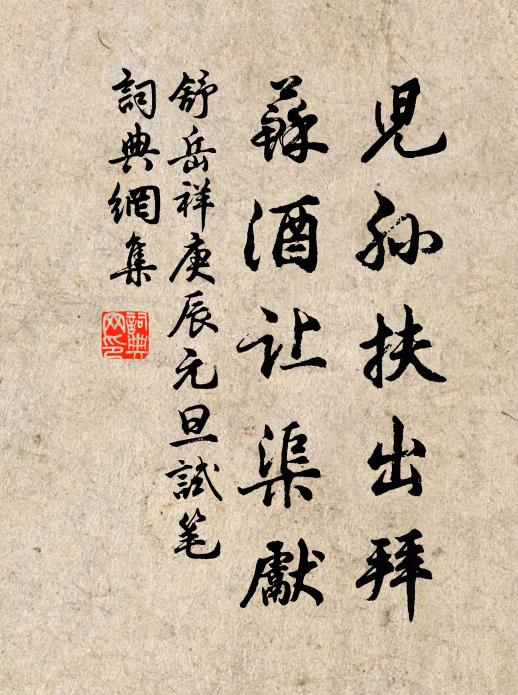 兒孙扶出拜
蘇酒让渠獻
舒岳祥庚辰元旦試笔
詞典網集
詞典网印